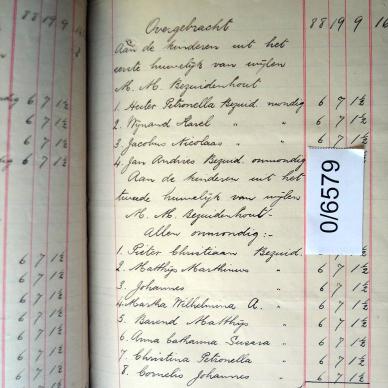 Overgebracht 88 19 9 16
Aan de kinderen uit het
eerste huwelijk van wijlen
M. M. Bezuidenhout
1. Hester Petronella Bezuid. mondig 6 7 1½
2. Wynand Karel " " 6 7 1½
3. Jacobus Nicolaas " " 6 7 1½
4. Jan Andries Bezuid onmondig 6 7 1½
Aan de kinderen uit het
tweede huwelijk van wijlen
M. M. Bezuidenhout -
Allen onmondig :-
1. Pieter Christiaan Bezuid. 6 7 1½
2. Matthijs Marthinus " 6 7 1½
3. Johannes " 6 7 1½
4. Martha Wilhelmina A. " 6 7 1½
5. Barend Matthys " 6 7 1½
6. Anna Catharina Susara " 6 7 1½
7. Christina Petronella " 6 7 1½
8. Cornelis Johannes " 6 7 1½
0/6579
88 19 9
6 7 1½
6 7 1½
6 7 1½
6 7 1½
6 7 1½
6 7 1½
6 7 1½
6 7 1½
6 7 1½
6 7 1½
6 7 1½
6 7 1½